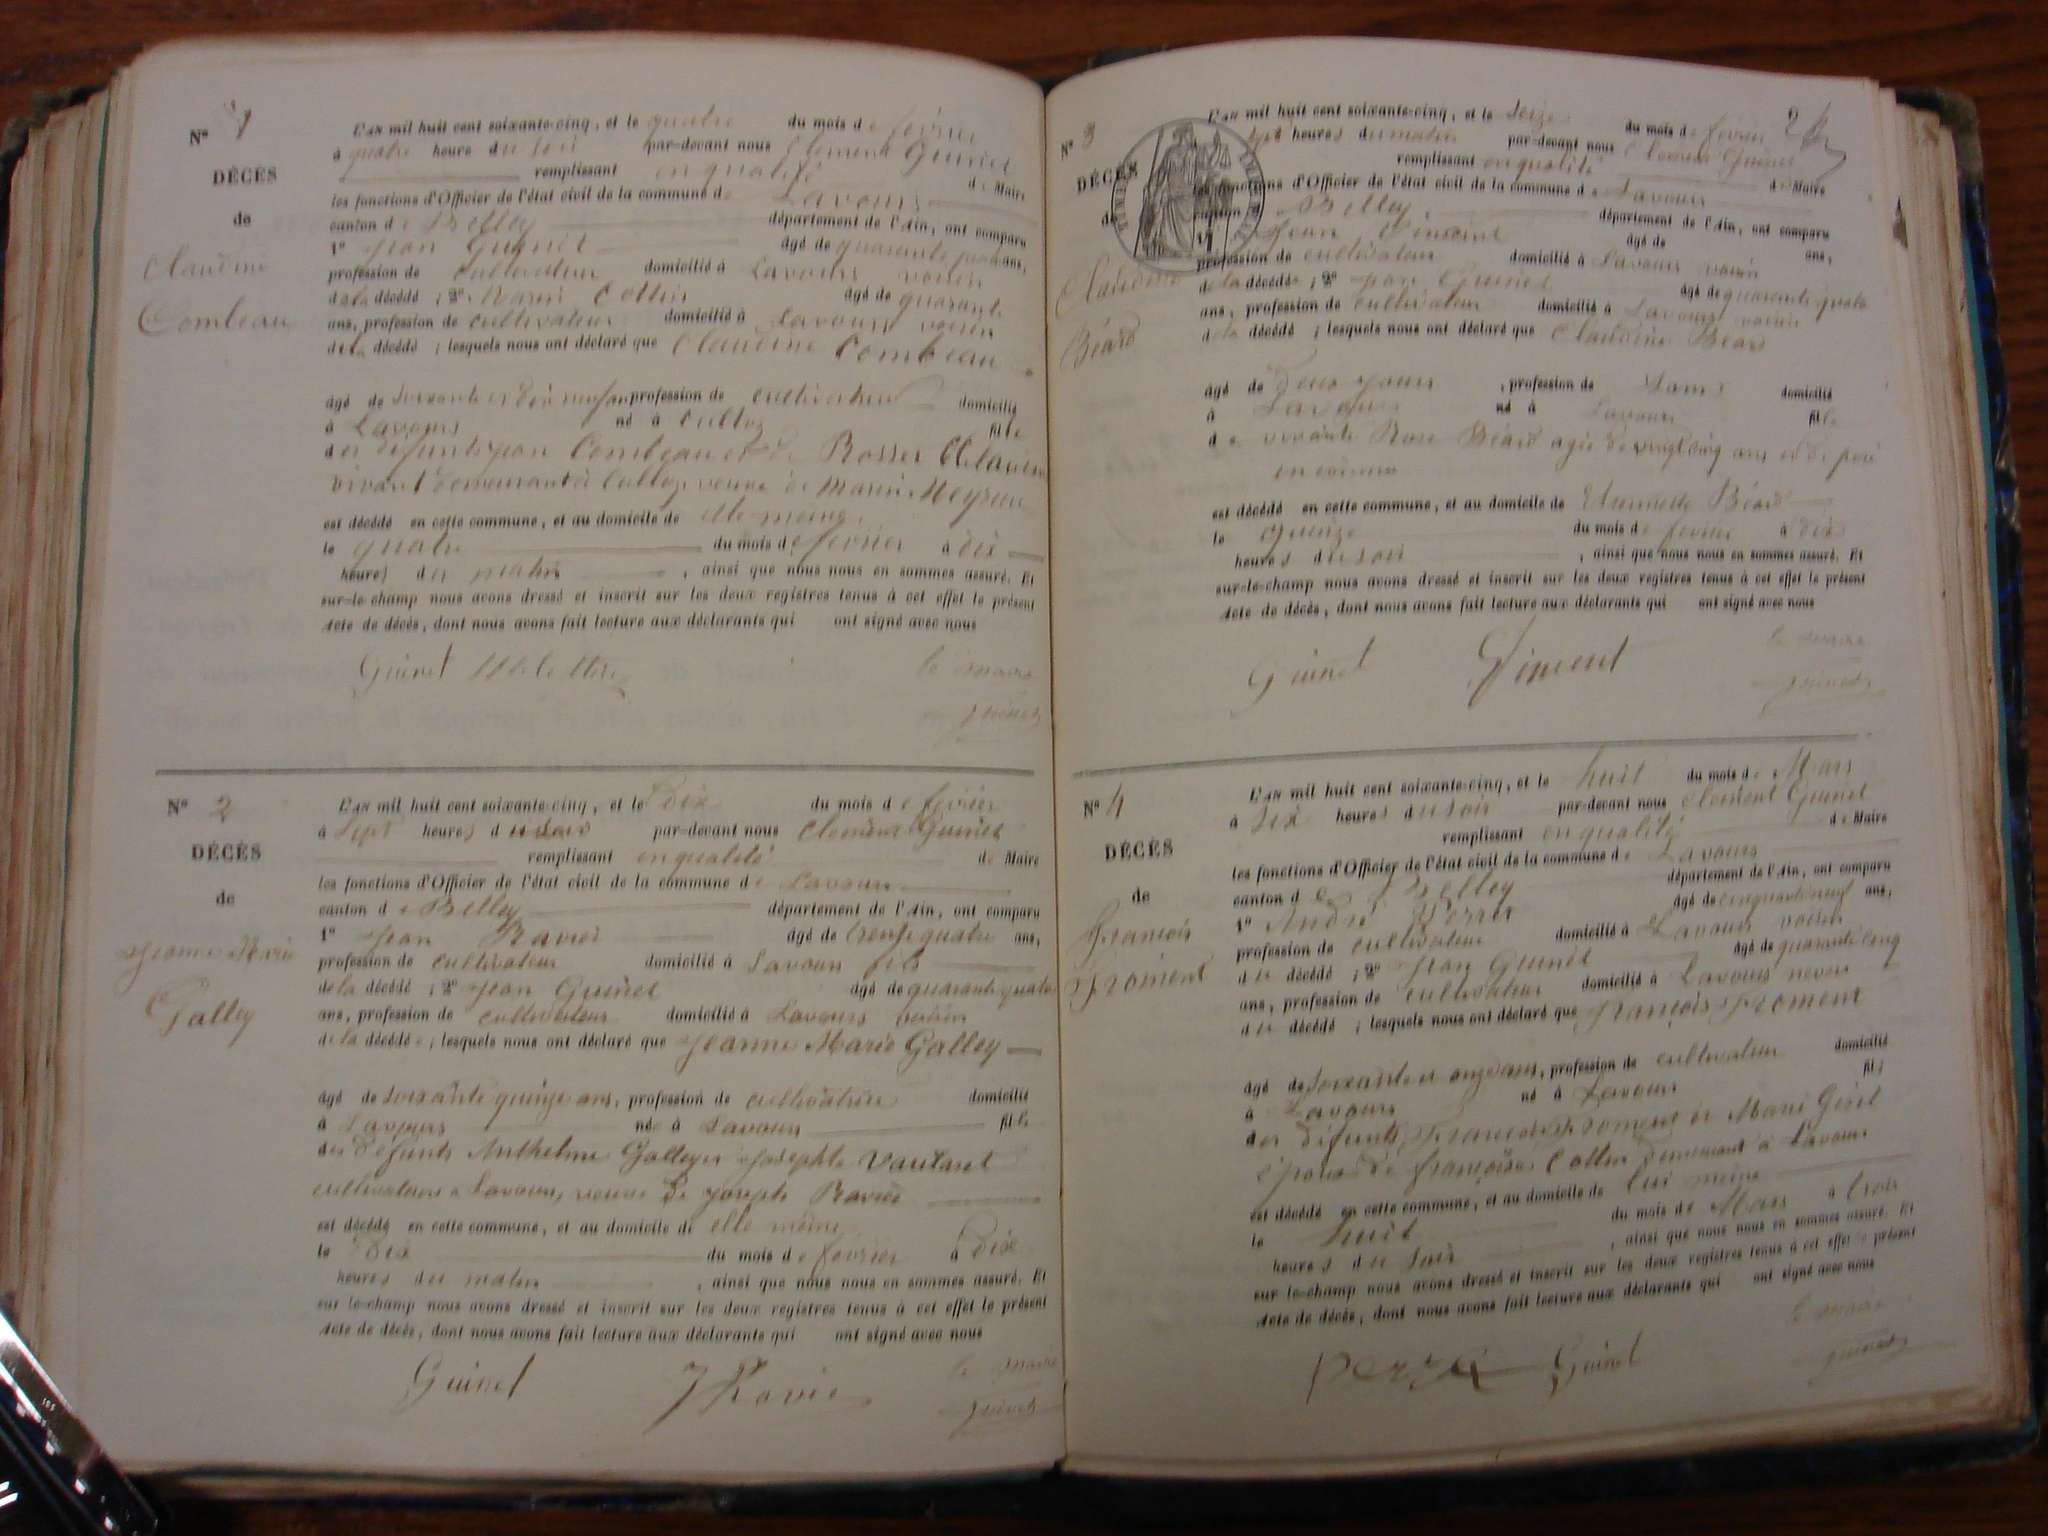 N° 1
DÉCÈS
de
Claudine
Combeau
L'an mil huit cent soixante-cinq, et le quatre du mois de février
à quatre heure du soir par-devant nous Clement Guinet
remplissant en qualité de Maire
les fonctions d'Officier de l'état civil de la commune de Lavours
canton de Belley département de l'Ain, ont comparu
1° Jean Guinet âgé de quarante quatre ans,
profession de cultivateur domicilié à Lavours voisin
de la décédé ; 2° Marin Cottin âgé de quarante
ans, profession de cultivateur domicilié à Lavours voisin
de la décédé ; lesquels nous ont déclaré que Claudine Combeau
âgé de soixante et dix neuf ans profession de domicilié
à Lavours né à Culloz fille
des défunts jean Combeau et de
vivant demeurant à Culloz veuve de Marin Meyrieu
est décédé en cette commune, et au domicile de elle-même
le quatre du mois de février à dix
heures du matin , ainsi que nous nous en sommes assuré. Et
sur-le-champ nous avons dressé et inscrit sur les deux registres tenus à cet effet le présent
Acte de décès, dont nous avons fait lecture aux déclarants qui ont signé avec nous
Guinet le maire
guinet
N° 2
DÉCÈS
de
Jeanne Marie
Galley
L'an mil huit cent soixante-cinq, et le Dix du mois de février
à sept heures du soir par-devant nous Clement Guinet
remplissant en qualité de Maire
les fonctions d'Officier de l'état civil de la commune de Lavours
canton de Belley département de l'Ain, ont comparu
1° Jean Ravier âgé de trente quatre ans,
profession de cultivateur domicilié à Lavours fils
de la décédé ; 2° Jean Guinet âgé de quarante quatre
ans, profession de cultivateur domicilié à Lavours voisin
de la décédée ; lesquels nous ont déclaré que Jeanne Marie Galley
âgé de soixante quinze ans, profession de cultivatrice domicilié
à Lavours née à Lavours fille
des défunts Anthelme Galley et Josephte Vautaret
cultivateurs à Lavours, veuve de joseph Ravier
est décédé en cette commune, et au domicile de elle même
le Dix du mois de février à Dix
heures du matin , ainsi que nous nous en sommes assuré. Et
sur-le-champ nous avons dressé et inscrit sur les deux registres tenus à cet effet le présent
Acte de décès, dont nous avons fait lecture aux déclarants qui ont signé avec nous
Guinet J Ravier le maire
guinet
2
N° 3
DÉCÈS
de
Claudine
Béard
L'an mil huit cent soixante-cinq, et le Seize du mois de février
sept heures du matin par-devant nous Clement Guinet
remplissant en qualité de Maire
les fonctions d'Officier de l'état civil de la commune de Lavours
canton de Belley département de l'Ain, ont comparu
1° Jean âgé de ans,
profession de cultivateur domicilié à Lavours voisin
de la décédée ; 2° Jean Guinet âgé de quarante quatre
ans, profession de cultivateur domicilié à Lavours voisin
de la décédé ; lesquels nous ont déclaré que Claudine Béard
âgé de Deux jours , profession de Sans domicilié
à Lavours né à Lavours fille
de vivante Rose Béard agée de vingt cinq ans et de père
inconnu
est décédé en cette commune, et au domicile de Béard
le Quinze du mois de février à dix
heures du soir , ainsi que nous nous en sommes assuré. Et
sur-le-champ nous avons dressé et inscrit sur les deux registres tenus à cet effet le présent
Acte de décès, dont nous avons fait lecture aux déclarants qui ont signé avec nous
Guinet le maire
guinet
N° 4
DÉCÈS
de
François
Froment
L'an mil huit cent soixante-cinq, et le huit du mois de Mars
à Six heures du soir par-devant nous Clement Guinet
remplissant en qualité de Maire
les fonctions d'Officier de l'état civil de la commune de Lavours
canton de Belley département de l'Ain, ont comparu
1° André Perret âgé de cinquante neuf ans,
profession de cultivateur domicilié à Lavours voisin
du décédé ; 2° Jean Guinet âgé de quarante cinq
ans, profession de cultivateur domicilié à Lavours neveu
du décédé ; lesquels nous ont déclaré que François Froment
âgé de soixante et onze ans, profession de cultivateur domicilié
à Lavours né à Lavours fils
des défunts François Froment et Marie
époux de françoise Cottin demeurant à Lavours
est décédé en cette commune, et au domicile de lui même
le huit du mois de Mars à trois
heures du soir , ainsi que nous nous en sommes assuré. Et
sur le-champ nous avons dressé et inscrit sur les deux registres tenus à cet effet le présent
Acte de décès, dont nous avons fait lecture aux déclarants qui ont signé avec nous
Guinet le maire
guinet